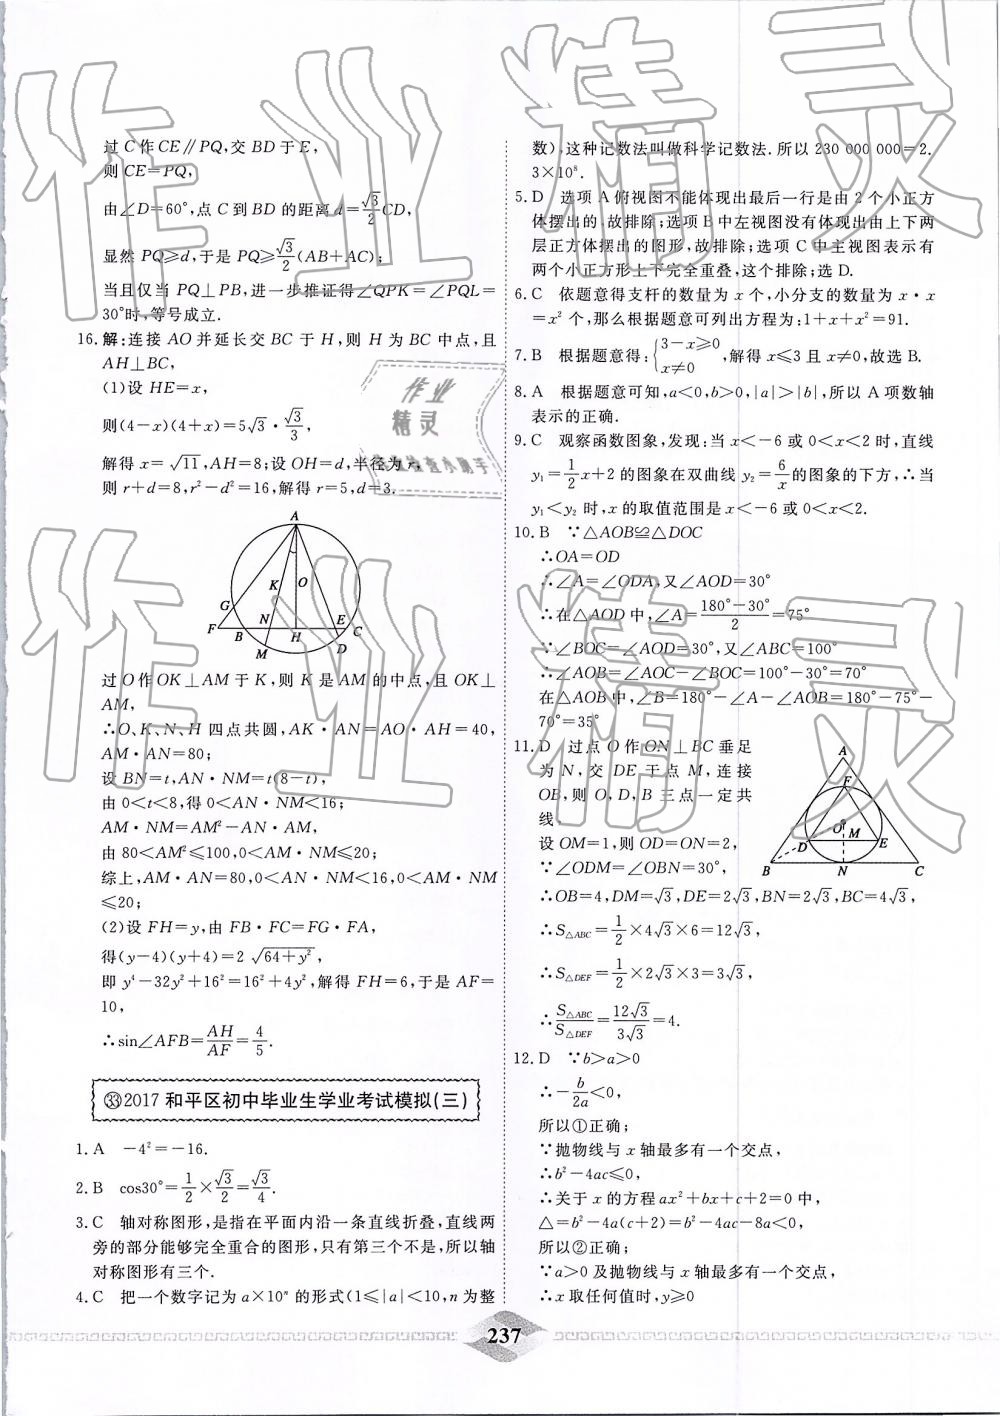 过C作CE∥PQ,交BD于E,
则CE=PQ,
由∠D=60°,点C到BD的距离d=√3/2 CD,
显然PQ≥d,于是PQ≥√3/2(AB+AC);
当且仅当PQ⊥PB,进一步推证得∠QPK=∠PQL=
30°时,等号成立.
16.解:连接AO并延长交BC于H,则H为BC中点,且
AH⊥BC,
(1)设HE=x,
则(4-x)(4+x)=5√3·√3/3,
解得x=√11,AH=8;设OH=d,半径为r,
则r+d=8,r²-d²=16,解得r=5,d=3.
A
K
O
G
F
B
N
H
E
C
M
D
过O作OK⊥AM于K,则K是AM的中点,且OK⊥
AM,
∴O、K、N、H四点共圆,AK·AN=AO·AH=40,
AM·AN=80;
设BN=t,AN·NM=t(8-t),
由0<t<8,得0<AN·NM<16;
AM·NM=AM²-AN·AM,
由80<AM²≤100,0<AM·NM≤20;
综上,AM·AN=80,0<AN·NM<16,0<AM·NM
≤20;
(2)设FH=y,由FB·FC=FG·FA,
得(y-4)(y+4)=2√64+y²,
即y⁴-32y²+16²=16²+4y²,解得FH=6,于是AF=
10,
∴sin∠AFB=AH/AF=4/5.
㉝2017和平区初中毕业生学业考试模拟(三)
1.A -4²=-16.
2.B cos30°=1/2×√3/2=√3/4.
3.C 轴对称图形,是指在平面内沿一条直线折叠,直线两
旁的部分能够完全重合的图形,只有第三个不是,所以轴
对称图形有三个.
4.C 把一个数字记为a×10ⁿ的形式(1≤|a|<10,n为整
数),这种记数法叫做科学记数法.所以230 000 000=2.
3×10⁸.
5.D 选项A俯视图不能体现出最后一行是由2个小正方
体摆出的,故排除;选项B中左视图没有体现出由上下两
层正方体摆出的图形,故排除;选项C中主视图表示有
两个小正方形上下完全重叠,这个排除;选D.
6.C 依题意得支杆的数量为x个,小分支的数量为x·x
=x²个,那么根据题意可列出方程为:1+x+x²=91.
7.B 根据题意得:{3-x≥0 x≠0,解得x≤3且x≠0,故选B.
8.A 根据题意可知,a<0,b>0,|a|>|b|,所以A项数轴
表示的正确.
9.C 观察函数图象,发现:当x<-6或0<x<2时,直线
y₁=1/2x+2的图象在双曲线y₂=6/x的图象的下方,∴当
y₁<y₂时,x的取值范围是x<-6或0<x<2.
10.B ∵△AOB≌△DOC
∴OA=OD
∴∠A=∠ODA,又∠AOD=30°
∴在△AOD中,∠A=180°-30°/2=75°
∵∠BOC=∠AOD=30°,又∠ABC=100°
∴∠AOB=∠AOC-∠BOC=100°-30°=70°
在△AOB中,∠B=180°-∠A-∠AOB=180°-75°-
70°=35°
11.D 过点O作ON⊥BC垂足
为N,交DE于点M,连接
OB,则O,D,B三点一定共
线.
设OM=1,则OD=ON=2,
∵∠ODM=∠OBN=30°,
∴OB=4,DM=√3,DE=2√3,BN=2√3,BC=4√3,
A
F
O
M
D
E
B
N
C
∴S△ABC=1/2×4√3×6=12√3,
∴S△DEF=1/2×2√3×3=3√3,
∴S△ABC/S△DEF=12√3/3√3=4.
12.D ∵b>a>0
∴-b/2a<0,
所以①正确;
∵抛物线与x轴最多有一个交点,
∴b²-4ac≤0,
∴关于x的方程ax²+bx+c+2=0中,
△=b²-4a(c+2)=b²-4ac-8a<0,
所以②正确;
∵a>0及抛物线与x轴最多有一个交点,
∴x取任何值时,y≥0
237
作业精灵
作业精灵
作业
精灵